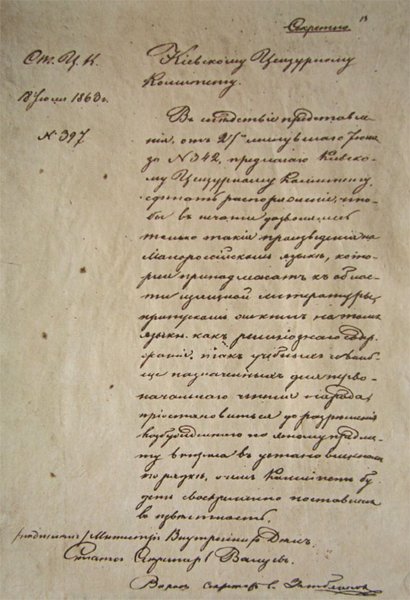 Секретно
Ст. Ц. К.
Кіевскому Цензурному
Комитету.
18 Іюля 1863 г.
№ 397
Въ слѣдствіе представле-
нія, отъ 27 минувшаго Іюня
за № 342, предлагаю Кіевско-
му Цензурному Комитету,
сдѣлать распоряженіе, что-
бы къ печати дозволялись
только такія произведенія на
Малороссійскомъ языкѣ, кото-
рыя принадлежатъ къ облас-
ти изящной литературы;
пропускомъ же книгъ на томъ
языкѣ, какъ религіознаго содер-
жанія, такъ учебныхъ и вооб-
ще назначенныхъ для перво-
начальнаго чтенія народа,
пріостановиться до разрѣшенія
возбужденнаго по этому предме-
ту вопроса въ установленномъ
порядкѣ, о чемъ Комитетъ бу-
детъ своевременно поставленъ
въ извѣстность.
(подписалъ) Министръ Внутреннихъ Дѣлъ,
Статсъ Секретарь Валуевъ.
Секретарь